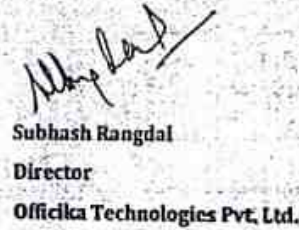 Subhash Rangdal
Director
Officika Technologies Pvt. Ltd.